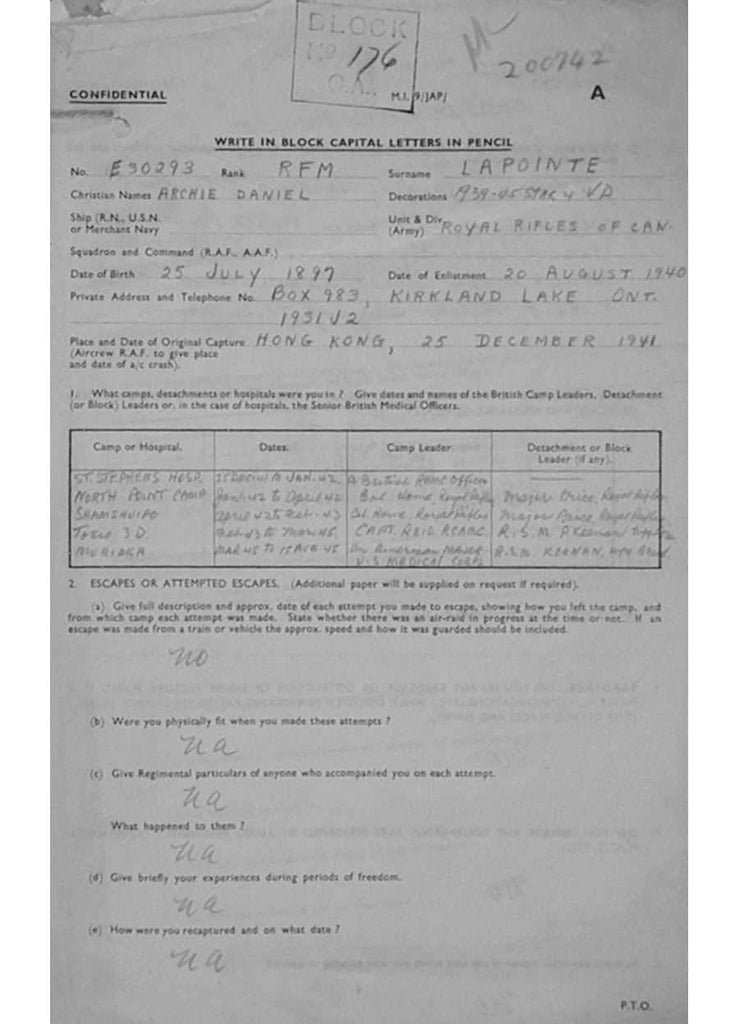 BLOCK
No 176
200742
CONFIDENTIAL
M.I. 9/JAP/
A
WRITE IN BLOCK CAPITAL LETTERS IN PENCIL
No. E30293 Rank RFM Surname LAPOINTE
Christian Names ARCHIE DANIEL Decorations 1939-45 STAR & VD
Ship (R.N., U.S.N. or Merchant Navy
Unit & Div. (Army) ROYAL RIFLES OF CAN.
Squadron and Command (R.A.F., A.A.F.)
Date of Birth 25 JULY 1897 Date of Enlistment 20 AUGUST 1940
Private Address and Telephone No. BOX 983, KIRKLAND LAKE ONT.
1931J2
Place and Date of Original Capture HONG KONG, 25 DECEMBER 1941
(Aircrew R.A.F. to give place
and date of a/c crash).
1. What camps, detachments or hospitals were you in? Give dates and names of the British Camp Leaders, Detachment
(or Block) Leaders or, in the case of hospitals, the Senior British Medical Officers.
Camp or Hospital. Dates. Camp Leader. Detachment or Block Leader (if any).
ST. STEPHENS HOSP. JAN. 42 A British RAMC Officer
NORTH POINT CAMP Jan 42 to April 42 Col Home Royal Rifles Major Price, Royal Rifles
SHAMSHUIPO April 42 Feb. 43 Col Home Royal Rifles Major Price, Royal Rifles
TOKIO 3D Feb. 43 to Mar. 45 CAPT. REID RCAMC R.S.M.
MURIOKA MAR 45 TO 15 AUG 45 An American MAJOR R.S.M. KEENAN,
U.S MEDICAL CORPS
2. ESCAPES OR ATTEMPTED ESCAPES. (Additional paper will be supplied on request if required).
(a) Give full description and approx. date of each attempt you made to escape, showing how you left the camp, and
from which camp each attempt was made. State whether there was an air-raid in progress at the time or not. If an
escape was made from a train or vehicle the approx. speed and how it was guarded should be included.
no
(b) Were you physically fit when you made these attempts?
na
(c) Give Regimental particulars of anyone who accompanied you on each attempt.
na
What happened to them?
na
(d) Give briefly your experiences during periods of freedom.
na
(e) How were you recaptured and on what date?
na
P.T.O.